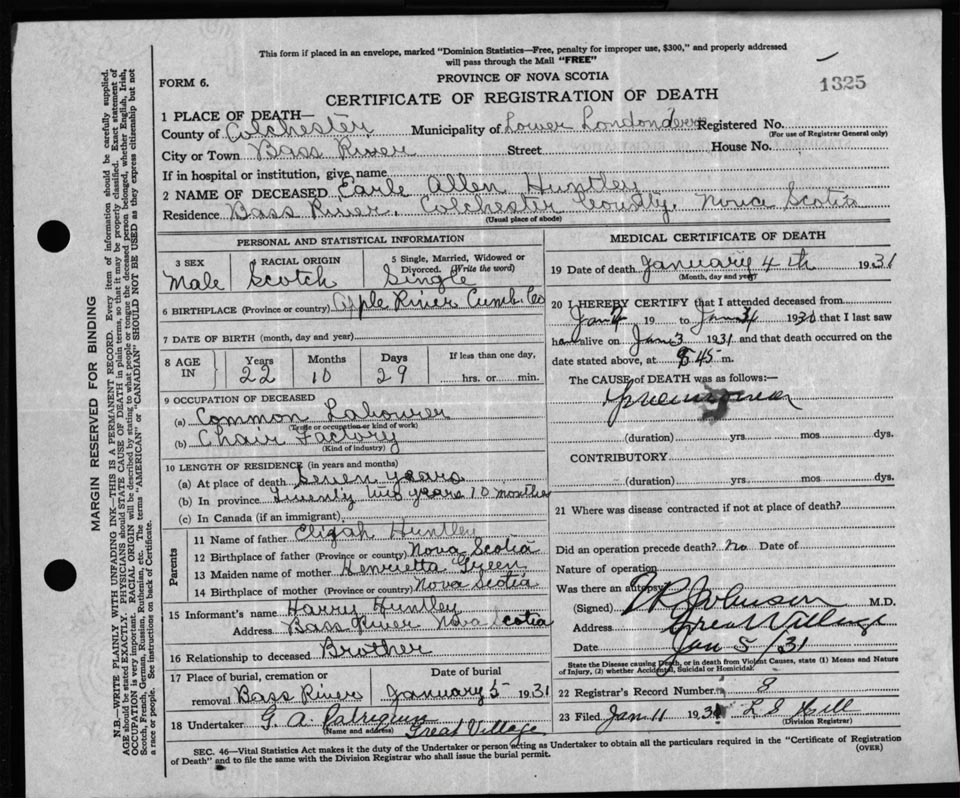 This form if placed in an envelope, marked "Dominion Statistics—Free, penalty for improper use, $300," and properly addressed
will pass through the Mail "FREE"
FORM 6.
PROVINCE OF NOVA SCOTIA
1325
CERTIFICATE OF REGISTRATION OF DEATH
1 PLACE OF DEATH—
County of Colchester Municipality of Lower Londonderry Registered No.
(For use of Registrar General only)
City or Town Bass River Street House No.
If in hospital or institution, give name
2 NAME OF DECEASED Earle Allen Huntley
Residence Bass River, Colchester County, Nova Scotia
(Usual place of abode)
PERSONAL AND STATISTICAL INFORMATION
3 SEX 4 RACIAL ORIGIN 5 Single, Married, Widowed or
Divorced. (Write the word)
Male Scotch Single
6 BIRTHPLACE (Province or country) Apple River Cumb. Co
7 DATE OF BIRTH (month, day and year)
8 AGE IN Years Months Days If less than one day,
22 10 29 hrs. or min.
9 OCCUPATION OF DECEASED
(a) Common Labourer
(Trade or occupation or kind of work)
(b) Chair Factory
(Kind of industry)
10 LENGTH OF RESIDENCE (in years and months)
(a) At place of death Seven years
(b) In province Twenty two years 10 months
(c) In Canada (if an immigrant)
Parents
11 Name of father Elijah Huntley
12 Birthplace of father (Province or country) Nova Scotia
13 Maiden name of mother Henrietta Green
14 Birthplace of mother (Province or country) Nova Scotia
15 Informant's name Harry Huntley
Address Bass River Nova Scotia
16 Relationship to deceased Brother
17 Place of burial, cremation or Date of burial
removal Bass River January 5 1931
18 Undertaker G. A.
(Name and address) Great Village
MEDICAL CERTIFICATE OF DEATH
19 Date of death January 4th 1931
(Month, day and year)
20 I HEREBY CERTIFY that I attended deceased from
Jan 19 to Jan 193 that I last saw
h alive on Jan 3 1931 and that death occurred on the
date stated above, at 45 m.
The CAUSE of DEATH was as follows:—
Pneumonia
(duration) yrs mos dys.
CONTRIBUTORY
(duration) yrs mos dys.
21 Where was disease contracted if not at place of death?
Did an operation precede death? no Date of
Nature of operation
Was there an autopsy
(Signed) Johnson M.D.
Address Great Village
Date Jan 5/31
State the Disease causing Death, or in death from Violent Causes, state (1) Means and Nature
of Injury, (2) whether Accidental, Suicidal or Homicidal.
22 Registrar's Record Number 8
23 Filed Jan 11 1931 L S Hill
(Division Registrar)
SEC. 46—Vital Statistics Act makes it the duty of the Undertaker or person acting as Undertaker to obtain all the particulars required in the "Certificate of Registration
of Death" and to file the same with the Division Registrar who shall issue the burial permit.
(OVER)
MARGIN RESERVED FOR BINDING
N.B.—WRITE PLAINLY, WITH UNFADING INK—THIS IS A PERMANENT RECORD. Every item of information should be carefully supplied.
AGE should be stated EXACTLY. PHYSICIANS should STATE CAUSE OF DEATH in plain terms, so that it may be properly classified. Exact statement of
OCCUPATION is very important. RACIAL ORIGIN will be described by stating to what people or tongue the deceased person belonged, whether English, Irish,
Scotch, French, German, Russian, Ruthenian, etc. The terms "AMERICAN" or "CANADIAN" SHOULD NOT BE USED as they express citizenship but not
a race or people. See instructions on back of Certificate.